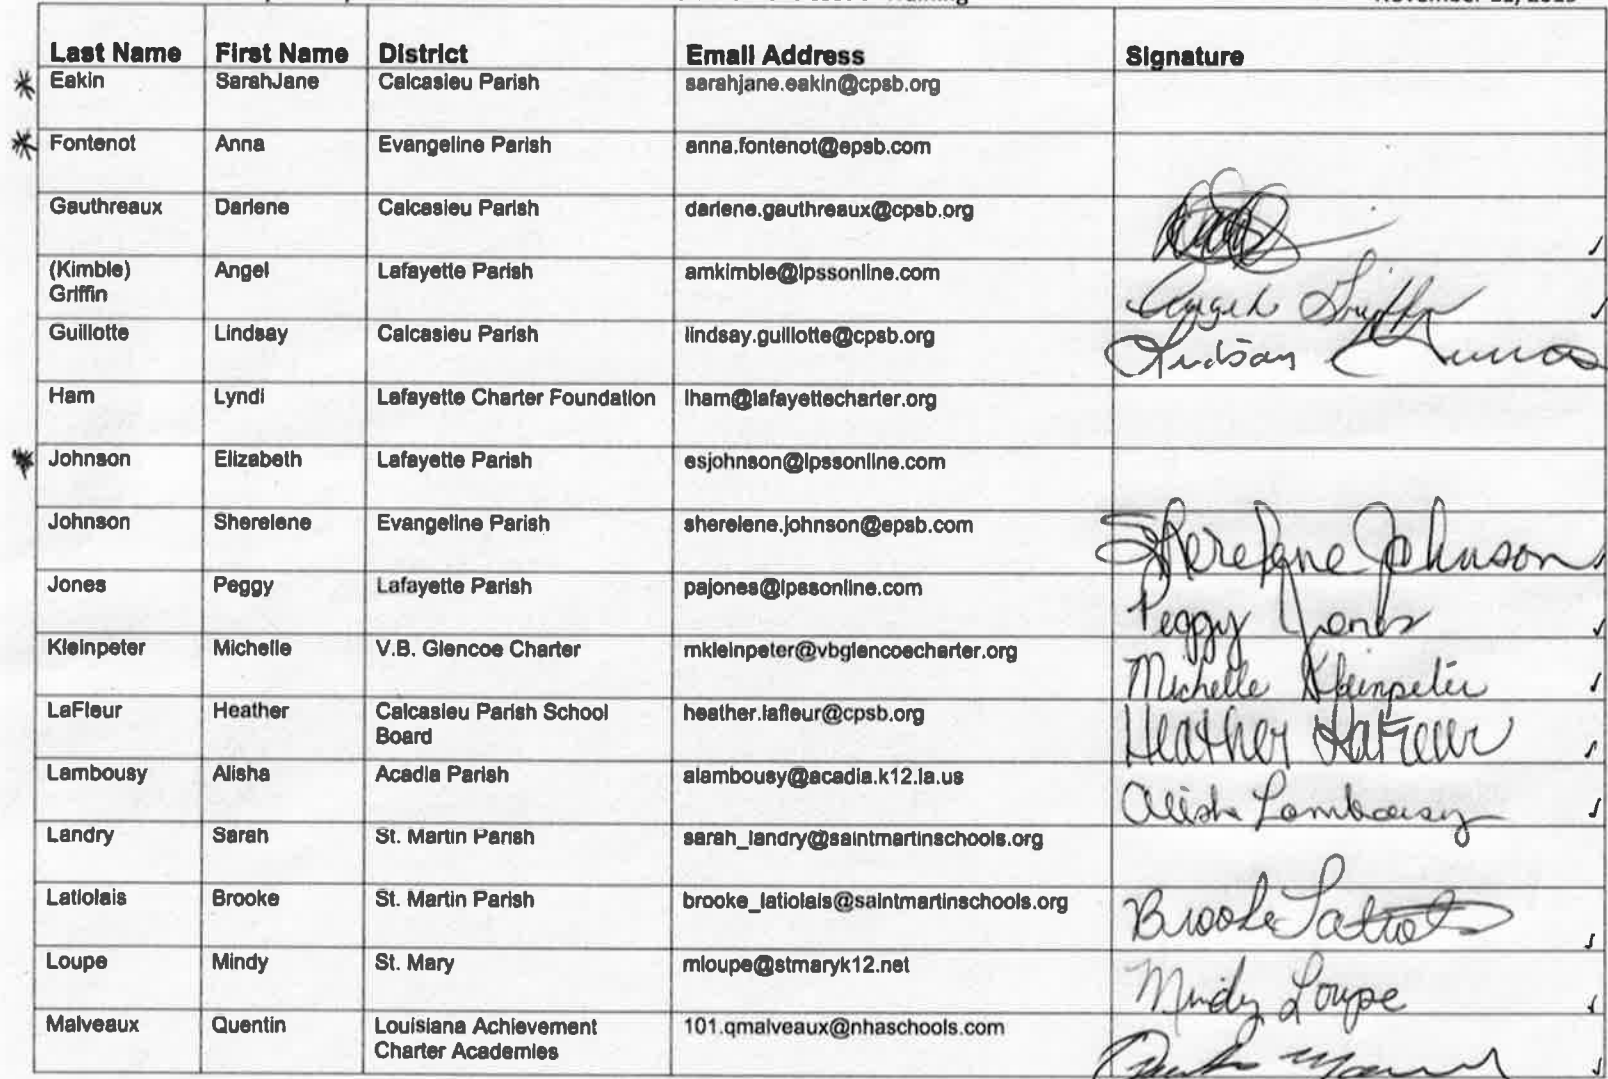 Training
Last Name First Name District Email Address Signature
Eakin SarahJane Calcasieu Parish sarahjane.eakin@cpsb.org
Fontenot Anna Evangeline Parish anna.fontenot@epsb.com
Gauthreaux Darlene Calcasieu Parish darlene.gauthreaux@cpsb.org
(Kimble) Angel Lafayette Parish amkimble@lpssonline.com
Griffin Angela Griffin
Guillotte Lindsay Calcasieu Parish lindsay.guillotte@cpsb.org Lindsay
Ham Lyndi Lafayette Charter Foundation lham@lafayettecharter.org
Johnson Elizabeth Lafayette Parish esjohnson@lpssonline.com
Johnson Sherelene Evangeline Parish sherelene.johnson@epsb.com Sherelene Johnson
Jones Peggy Lafayette Parish pajones@lpssonline.com Peggy Jones
Kleinpeter Michelle V.B. Glencoe Charter mkleinpeter@vbglencoecharter.org Michelle Kleinpeter
LaFleur Heather Calcasieu Parish School heather.lafleur@cpsb.org Heather LaFleur
Board
Lambousy Alisha Acadia Parish alambousy@acadia.k12.la.us Alisha Lambousy
Landry Sarah St. Martin Parish sarah_landry@saintmartinschools.org
Latiolais Brooke St. Martin Parish brooke_latiolais@saintmartinschools.org Brooke Latiolais
Loupe Mindy St. Mary mloupe@stmaryk12.net Mindy Loupe
Malveaux Quentin Louisiana Achievement 101.qmalveaux@nhaschools.com
Charter Academies